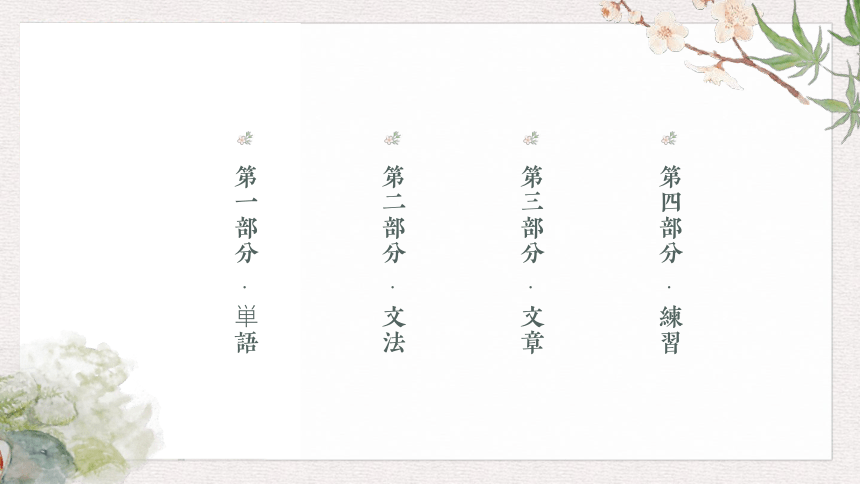 第一部分·単語
第二部分·文法
第三部分·文章
第四部分·練習